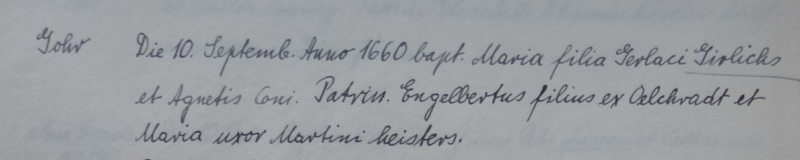 Gohr Die 10. Septemb. Anno 1660 bapt. Maria filia Gerlaci Girlichs
et Agnetis Coni. Patrin. Engelbertus filius ex Oelchradt et
Maria uxor Martini heisters.